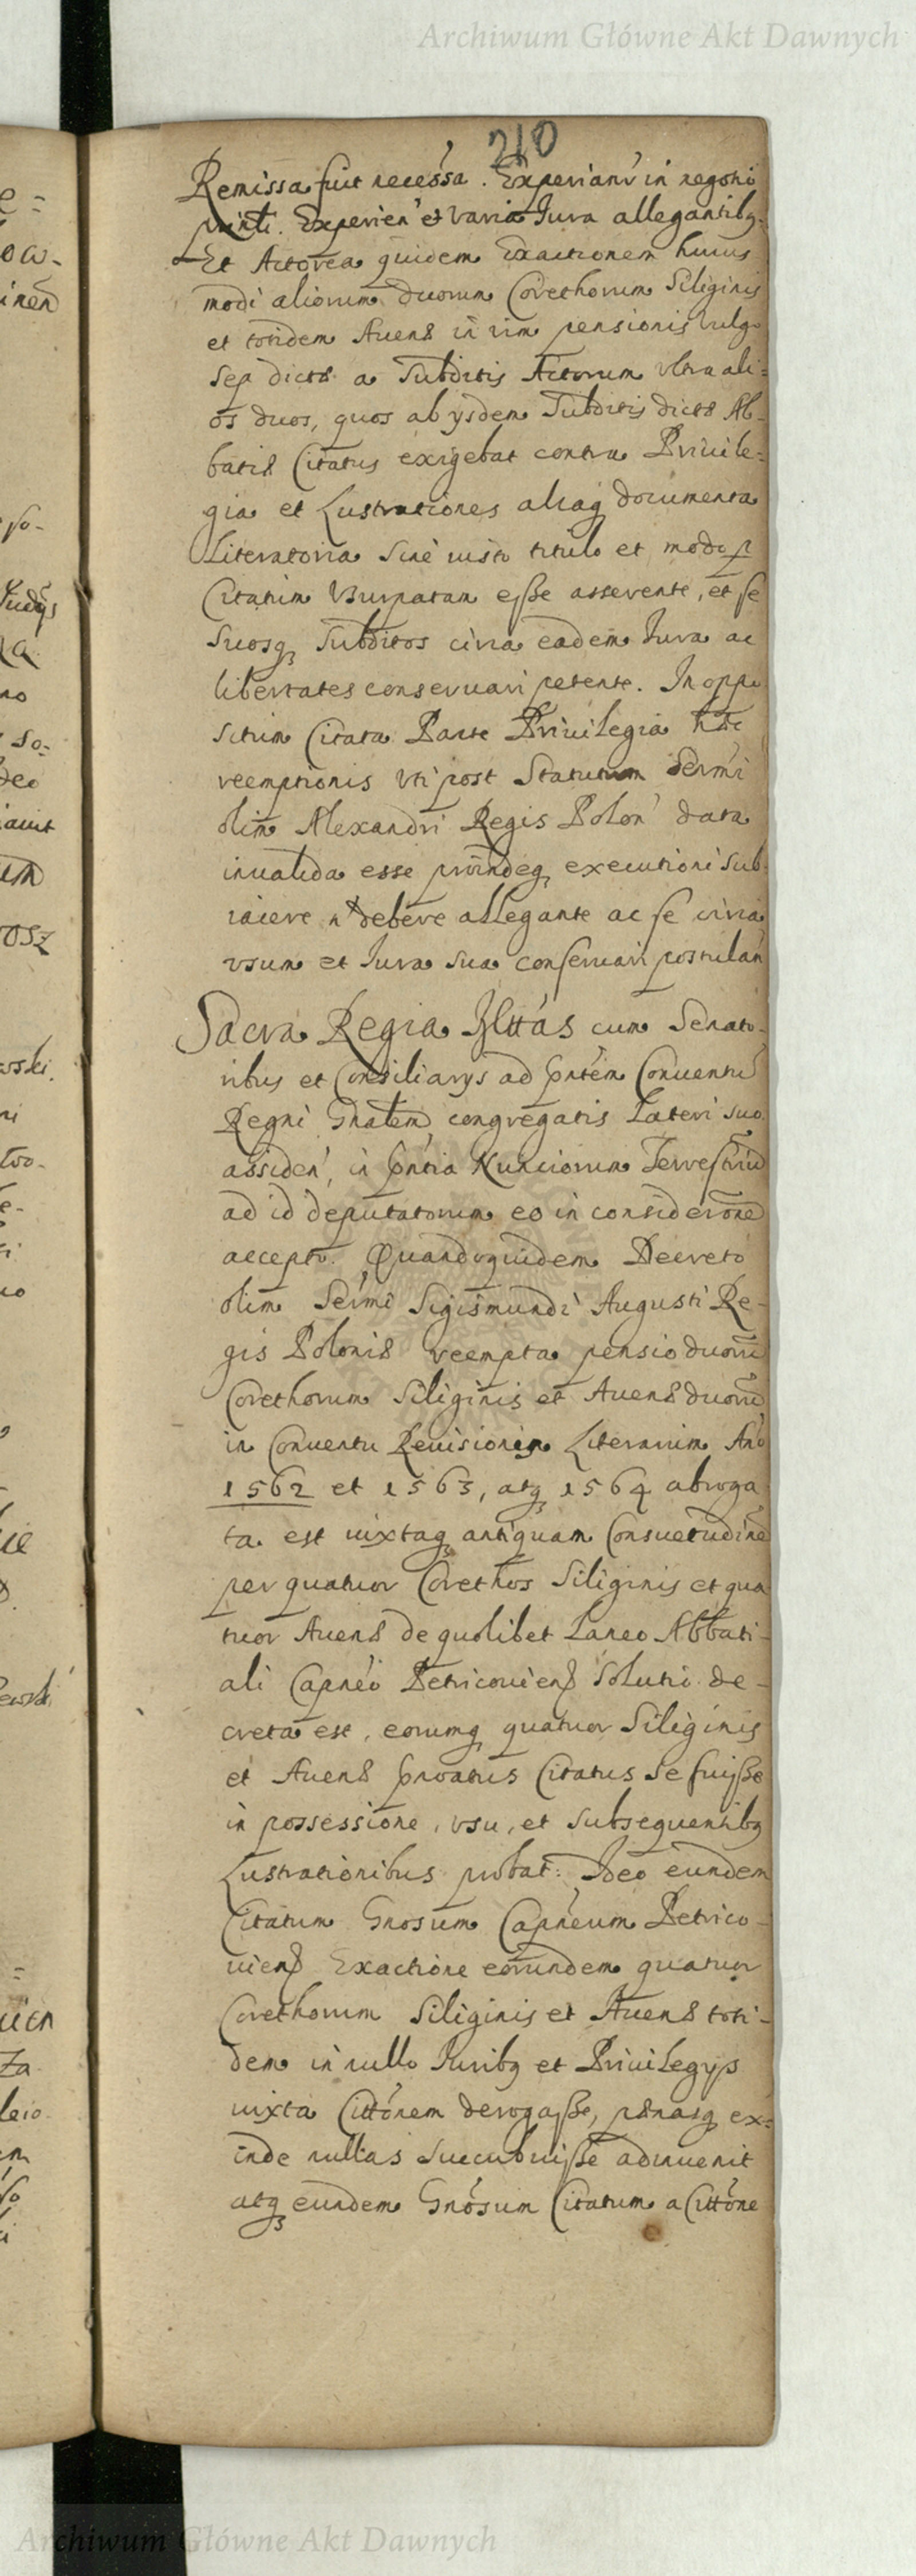 Archiwum Główne Akt Dawnych
210
Remissa fuit necessa. Experianr in negotio
pnti. Experien et varia Jura allegantibq.
Et Actorea quidem Exactionem huius
modi aliorum duorum Corethorum Siliginis
et totidem Auenæ in vim pensionis vulgo
Sep dictæ a Subditis Actorum vltra ali=
os duos, quos ab ysdem Subditis dictæ Ab-
batiæ Citatus exigebat contra Priuile-
gia et Lustrationes aliaq documenta
Literatoria Sine iusto titulo et modo p
Citatum Vsurpatam esse asserente, et se
Suosq Subditos circa eadem Jura ac
libertates conseruari petente. In oppo
situm Citata Parte Priuilegia
reemptionis vti post Statutum Sermi
olim Alexandri Regis Polon data
inualida esse proindeq executioni Sub-
iacere n debere allegante ac se circa
vsum et Iura Sua conseruari postulan
Sacra Regia Mttas cum Senato-
ribus et Consiliarys ad pntem Conuentu
Regni Gnalem congregatis Lateri suo
assiden, in pntia Nunciorum Terrestriu
ad id deputatorum eo in considerone
accepto. Quandoquidem Decreto
olim Sermi Sigismundi Augusti Re-
gis Poloniæ reempta pensio duoru
Corethorum Siliginis et Auenæ duoru
in Conuentu Reuisionis Literarum Ano
1562 et 1563, atq 1564 abroga
ta est iuxtaq antiquam Consuetudine
per quatuor Corethos Siliginis et qua
tuor Auenæ de quolibet Laneo Abbati-
ali Capneo Petricouien Solutio de-
creta est, eorumq quatuor Siliginis
et Auenæ pnoatus Citatus Se fuisse
in possessione, vsu, et Subsequentibq
Lustrationibus probat: Ideo eundem
Citatum Gnosum Capneum Petrico-
uien Exactione eorundem quatuor
Corethorum Siliginis et Auenæ toti-
dem in nullo Juribq et Priuilegys
iuxta Cittonem derogasse, pænasq ex=
inde nullas Succubuisse adinuenit
atq eundem Gnosum Citatum a Cittone
Archiwum Główne Akt Dawnych